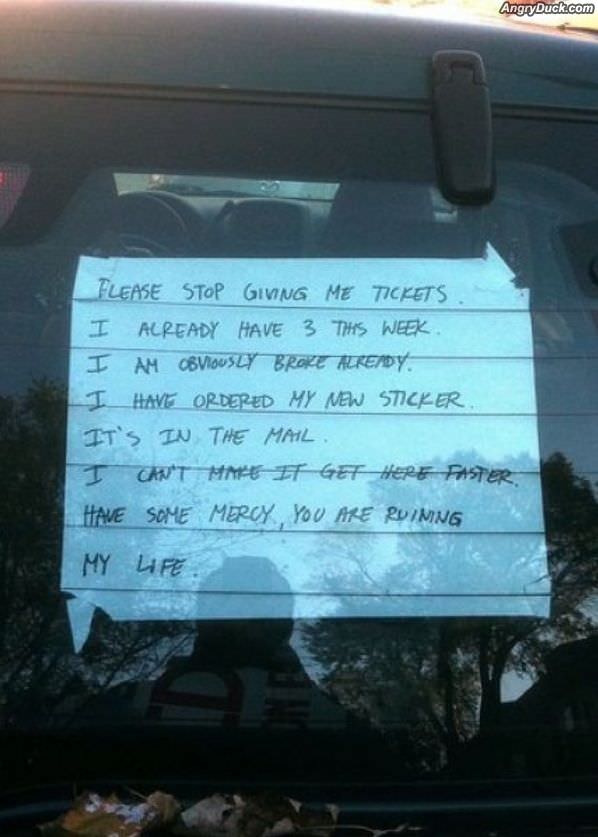 AngryDuck.com
PLEASE STOP GIVING ME TICKETS.
I ALREADY HAVE 3 THIS WEEK.
I AM OBVIOUSLY BROKE ALREADY.
I HAVE ORDERED MY NEW STICKER.
IT'S IN THE MAIL.
I CAN'T MAKE IT GET HERE FASTER.
HAVE SOME MERCY, YOU ARE RUINING
MY LIFE.